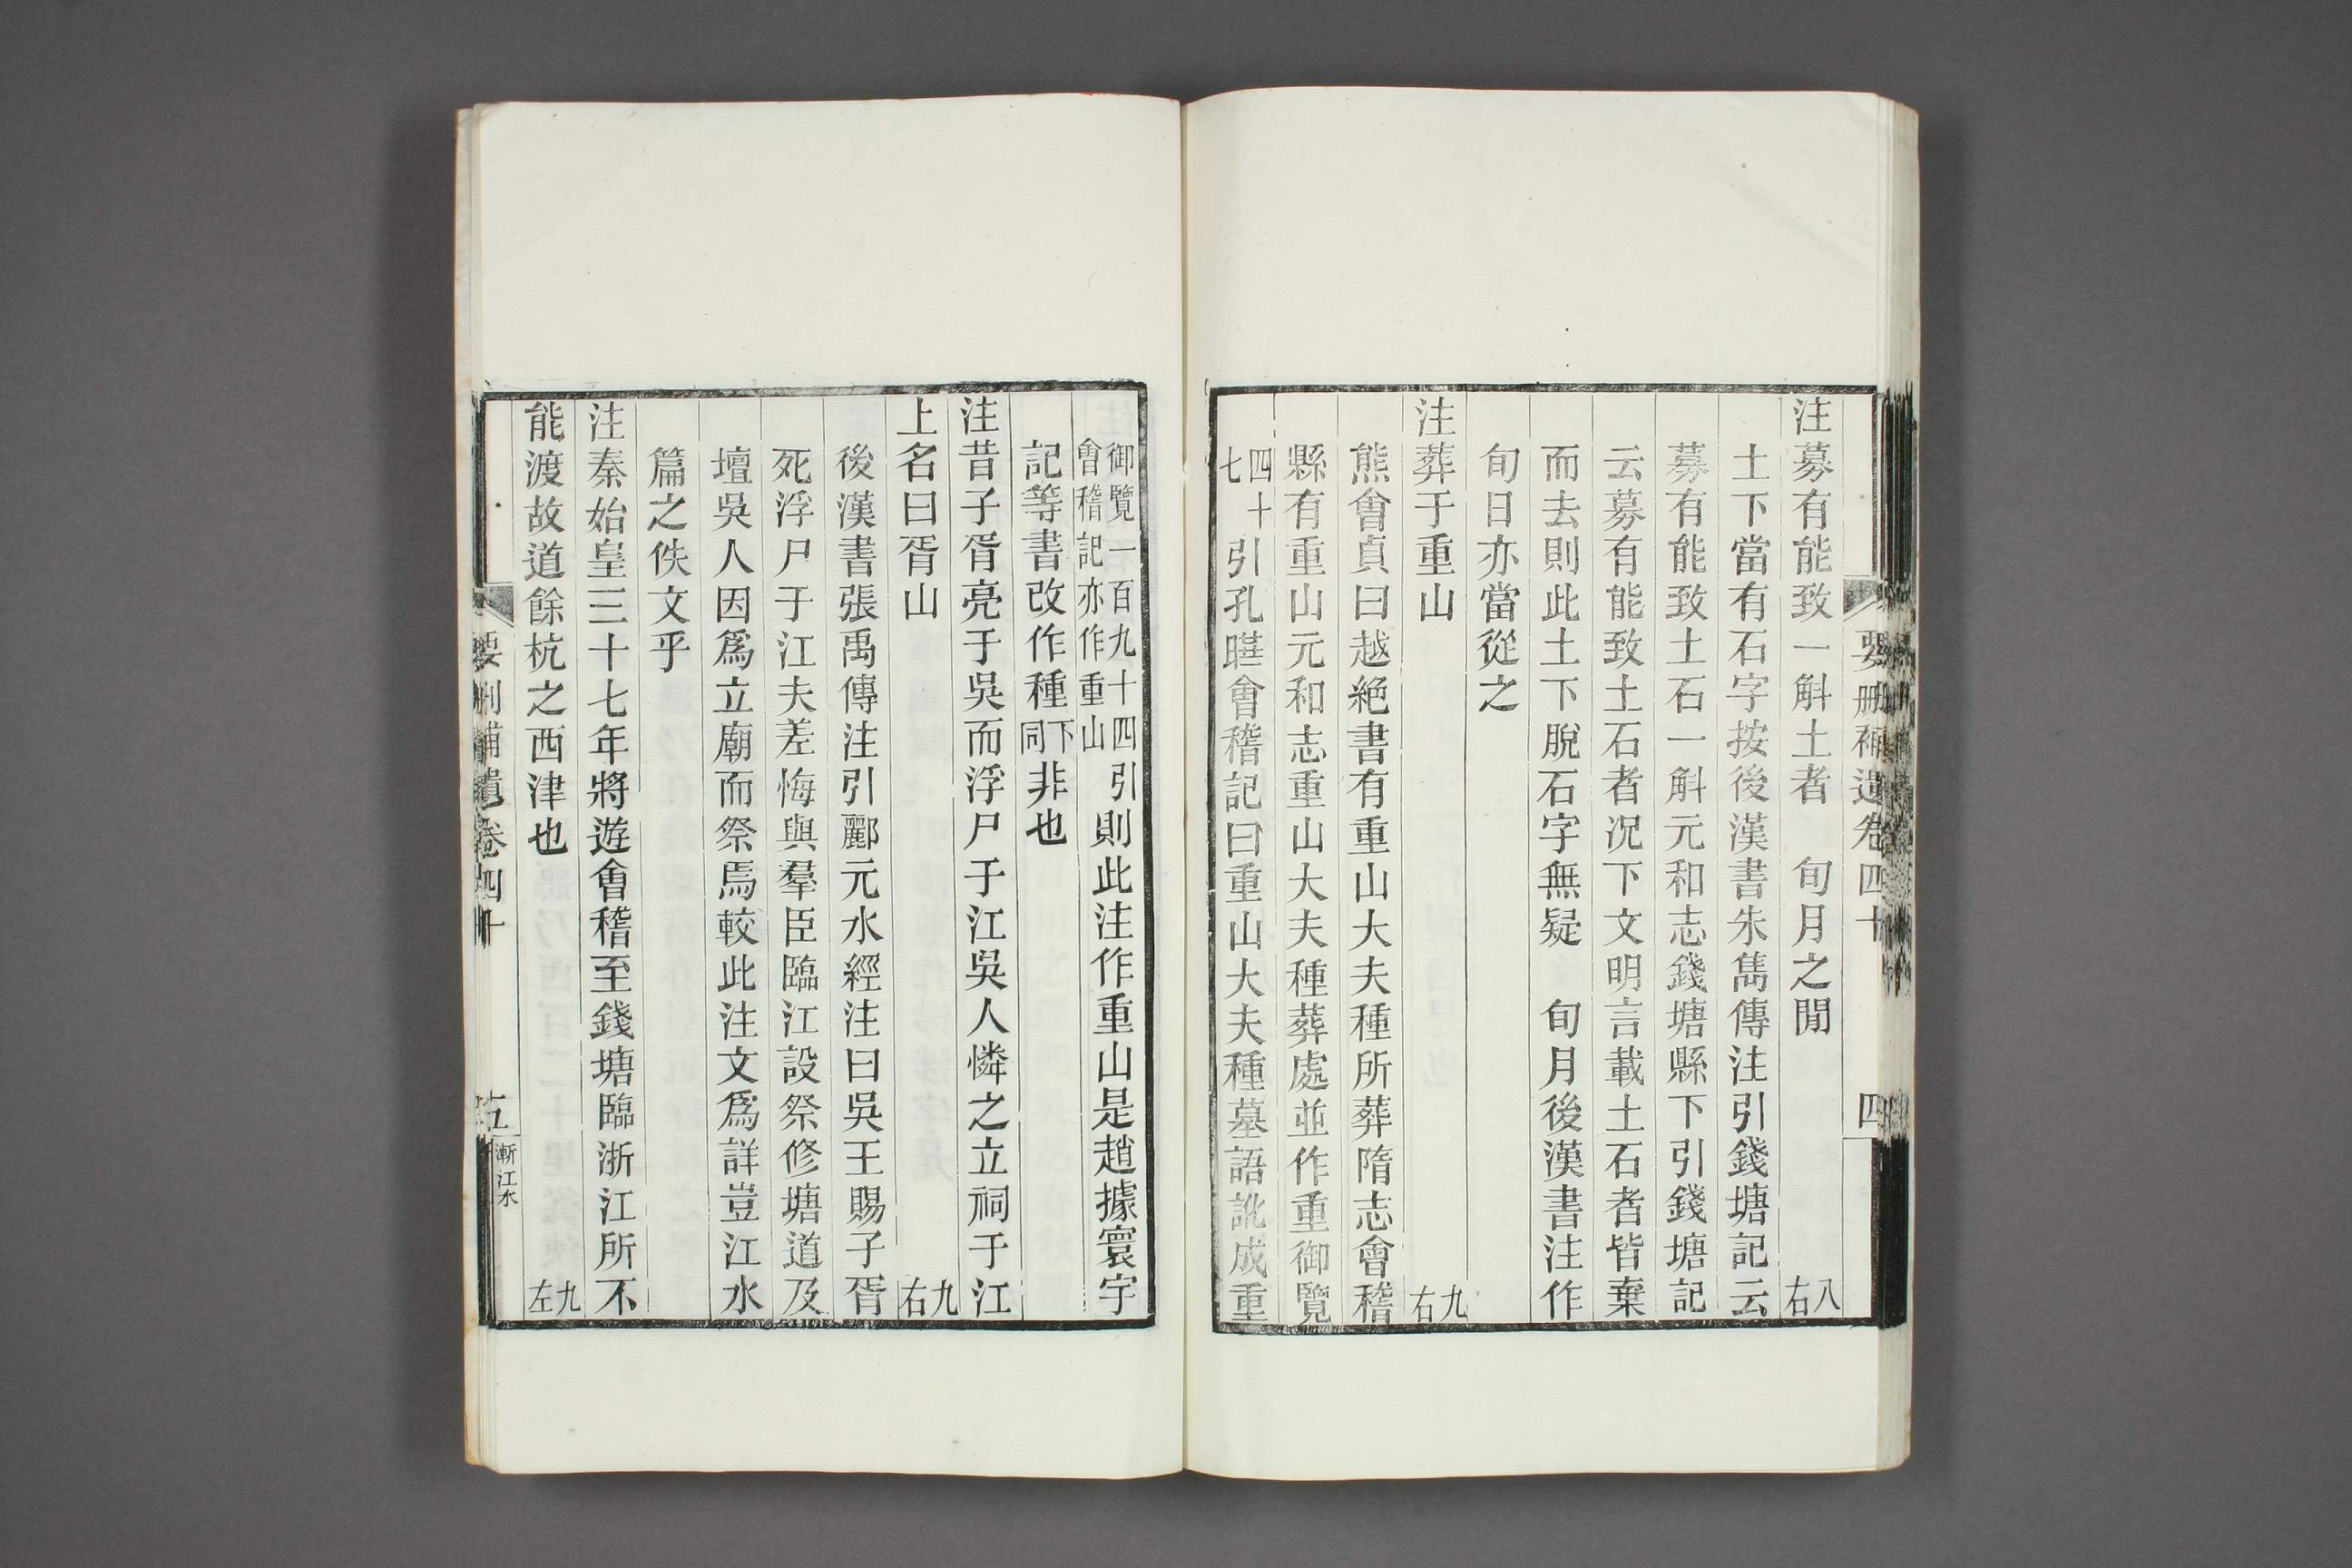 要刪補遺卷四十 四
注募有能致一斛土者 旬月之閒 八右
土下當有石字按後漢書朱儁傳注引錢塘記云
募有能致土石一斛元和志錢塘縣下引錢塘記
云募有能致土石者况下文明言載土石者皆棄
而去則此土下脫石字無疑 旬月後漢書注作
旬日亦當從之
注葬于重山 九右
熊會貞曰越絕書有重山大夫種所葬隋志會稽
縣有重山元和志重山大夫種葬處並作重御覽
四十七引孔曄會稽記曰重山大夫種墓語訛成重
御覽一百九十四引會稽記亦作重山則此注作重山是趙據寰宇
記等書改作種下同非也
注昔子胥亮于吳而浮尸于江吳人憐之立祠于江
上名曰胥山 九右
後漢書張禹傳注引酈元水經注曰吳王賜子胥
死浮尸于江夫差悔與羣臣臨江設祭修塘道及
壇吳人因爲立廟而祭焉較此注文爲詳豈江水
篇之佚文乎
注秦始皇三十七年將遊會稽至錢塘臨浙江所不
能渡故道餘杭之西津也 九左
要刪補遺卷四十 五 漸江水